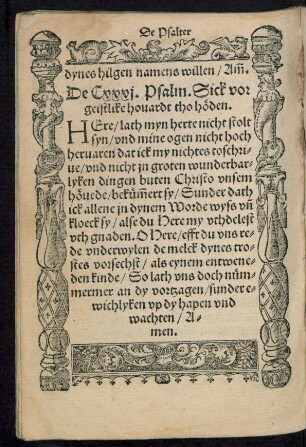 De Psalter
dynes hilgen namens willen / Am̄.
De Cxxxj. Psalm. Sick vor
geistlike houardt tho höden.
HEre / lath myn herte nicht stolt
syn / vnd mine ogen nicht hoch
heruaren dat ick my nichtes toschri-
ue / vnd nicht jn groten wunderbar-
lyken dingen buten Christo vnsem
höuede / bekům̄ert sy / Sunder dath
ick allene jn dynem Worde wyss vñ
kloeck sy / alse du Here my vthdelest
vth gnaden. O Here / efft du vns re-
de vnderwylen de melck dynes tro-
stes vorsechst / als eynem entwene-
den kinde / So lath vns doch nům-
mermer an dy vortzagen / sunder e-
wichlyken vp dy hapen vnd
wachten / A-
men.